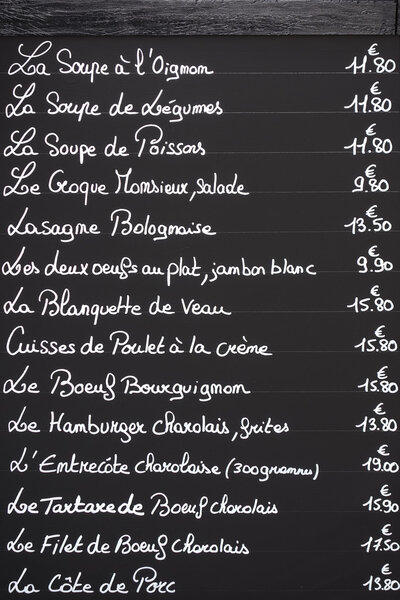 La Soupe à l'Oignon €11.80
La Soupe de Légumes €11.80
La Soupe de Poissons €11.80
Le Croque Monsieur, salade €9.80
Lasagne Bolognaise €13.50
Les deux oeufs au plat, jambon blanc €9.90
La Blanquette de Veau €15.80
Cuisses de Poulet à la crème €15.80
Le Boeuf Bourguignon €15.80
Le Hamburger charolais, frites €13.80
L'Entrecôte charolaise (300grammes) €19.00
Le Tartare de Boeuf charolais €15.90
Le Filet de Boeuf Charolais €17.50
La Côte de Porc €13.80